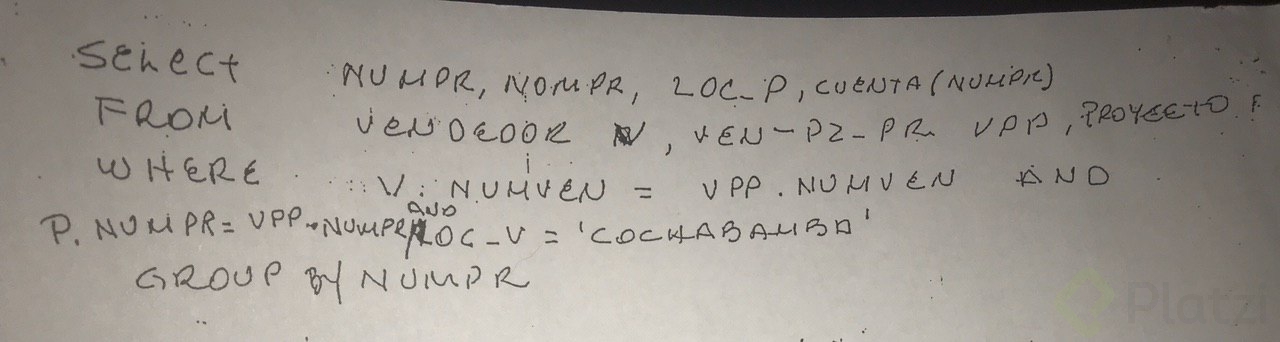 SELECT NUMPR, NOMPR, LOC_P, CUENTA(NUMPR)
FROM VENDEDOR V, VEN-PZ-PR VPP, PROYECTO P
WHERE V.NUMVEN = VPP.NUMVEN AND
P.NUMPR = VPP.NUMPR AND LOC-V = 'COCHABAMBA'
GROUP BY NUMPR
Platzi